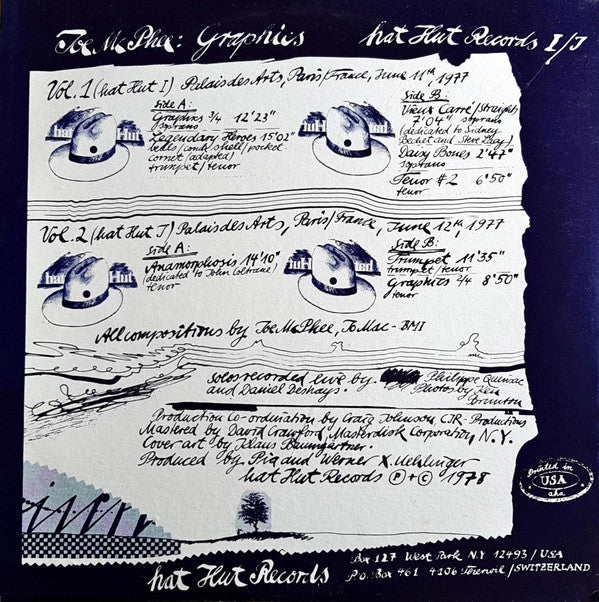 Joe McPhee: Graphics hat Hut Records I/J
Vol. 1 (hat Hut I) Palais des Arts, Paris/France, June 11th, 1977
Side A:
Graphics 3/4 12'23"
soprano
Legendary Heroes 15'02"
bells/conch shell/pocket
cornet (adapted)
trumpet/tenor
hat Hut
Side B:
Vieux Carré/Straight
7'04" soprano
(dedicated to Sidney
Bechet and Steve Lacy)
Daisy Bones 2'47"
soprano
Tenor #2 6'50"
tenor
Vol. 2 (hat Hut J) Palais des Arts, Paris/France, June 12th, 1977
Side A:
Anamorphosis 14'10"
(dedicated to John Coltrane)
tenor
hat Hut
Side B:
Trumpet 11'35"
trumpet/tenor
Graphics 2/4 8'50"
tenor
All compositions by Joe McPhee, JoMac-BMI
Solos recorded live by Philippe Quinsac
and Daniel Deshays. Photos by Ken
Brunton
Production Co-ordination by Craig Johnson, CJR-Productions
Mastered by David Crawford, Masterdisk Corporation, N.Y.
Cover art by Klaus Baumgärtner
Produced by Pia and Werner X. Uehlinger
hat Hut Records ℗+© 1978
Printed in
USA
hat Hut Records
Box 127 West Park N.Y 12493/USA
P.O. Box 461 4106 Therwil/SWITZERLAND